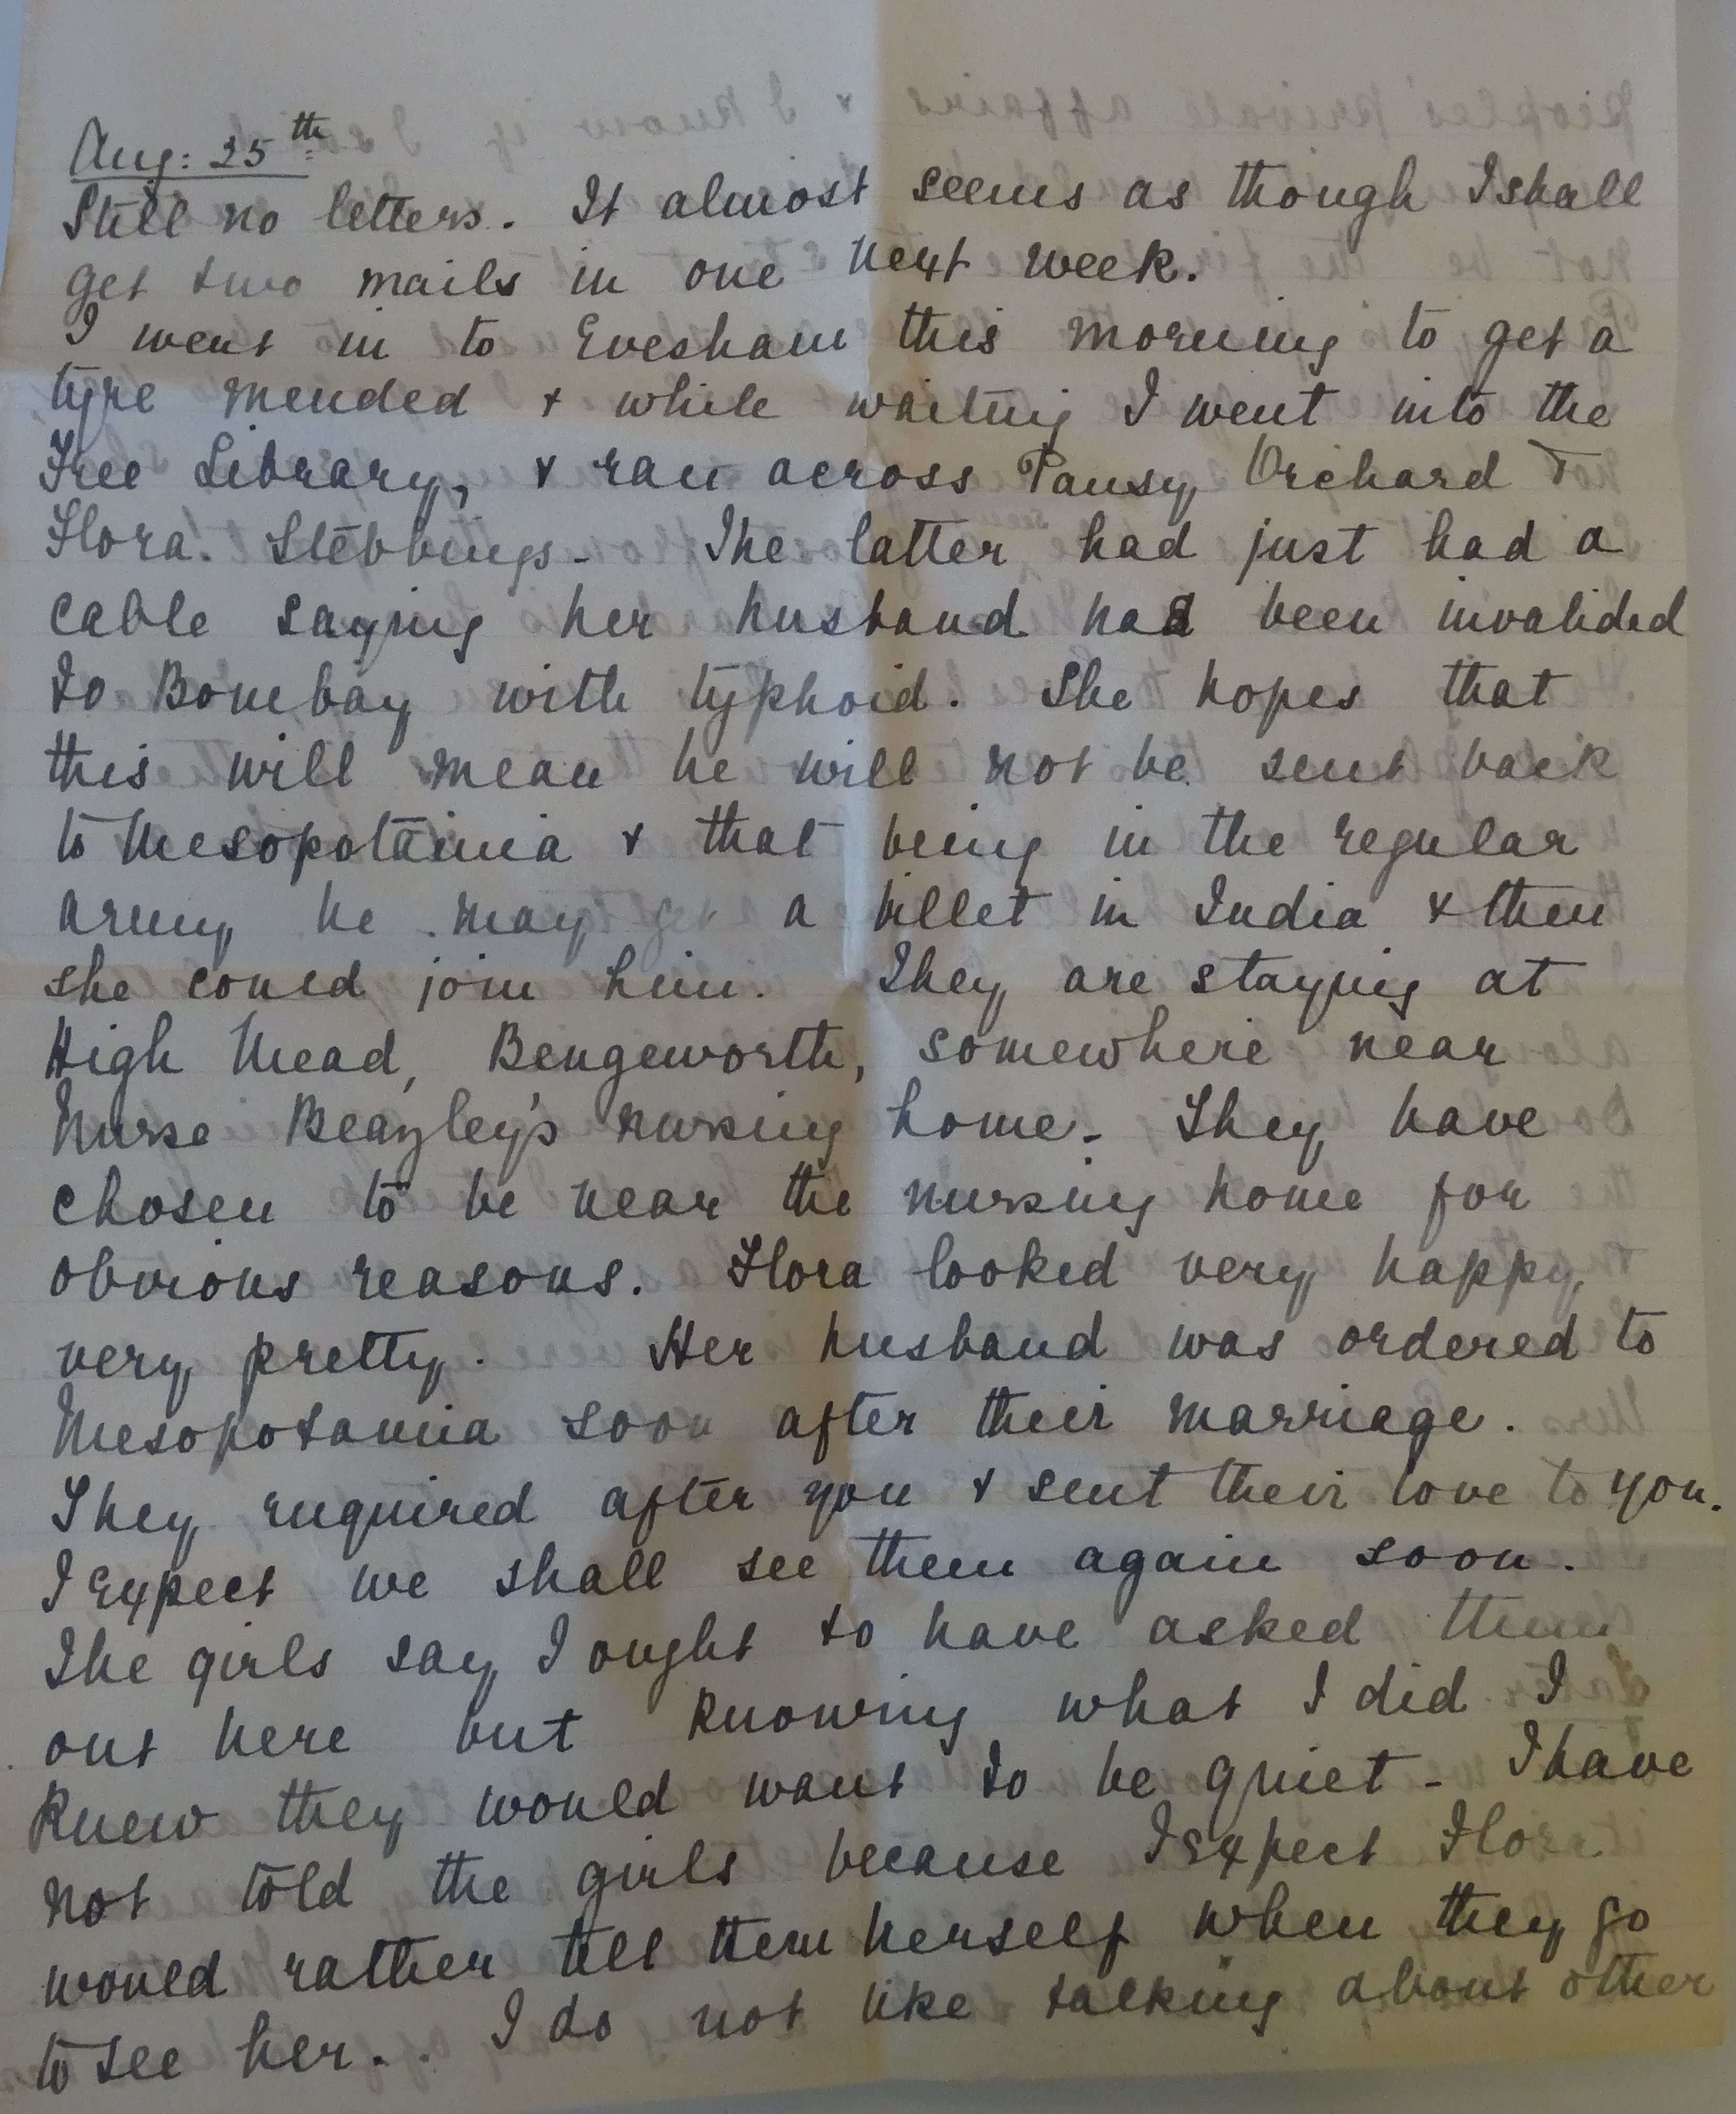 Aug: 25th
Still no letters. It almost seems as though I shall
get two mails in one next week.
I went in to Evesham this morning to get a
tyre mended & while waiting I went into the
Free Library, & ran across Pansy Orchard &
Flora. Stebbings - The latter had just had a
cable saying her husband had been invalided
to Bombay with typhoid. She hopes that
this will mean he will not be sent back
to Mesopotamia & that being in the regular
army he may get a billet in India & then
she could join him. They are staying at
High Mead, Bengeworth, somewhere near
Nurse Beazley's nursing home. They have
chosen to be near the nursing home for
obvious reasons. Flora looked very happy,
very pretty. Her husband was ordered to
Mesopotamia soon after their marriage.
They enquired after you & sent their love to you.
I expect we shall see them again soon.
The girls say I ought to have asked them
out here but knowing what I did I
knew they would want to be quiet - I have
not told the girls because I expect Flora
would rather tell them herself when they go
to see her. . I do not like talking about other